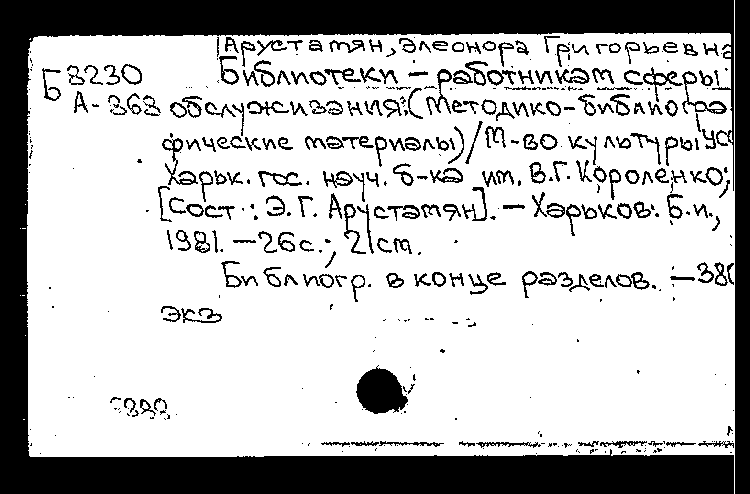 Арустамян, Элеонора Григорьевна
Б 8230 Библиотеки – работникам сферы
А-868 обслуживания: (Методико-библиогра-
фические материалы) / М-во культуры УС
Харьк. гос. науч. б-ка им. В.Г. Короленко;
[Сост.: Э. Г. Арустамян]. – Харьков: Б.и.,
1981. – 26с.; 21cm.
Библиогр. в конце разделов. – 380
экз